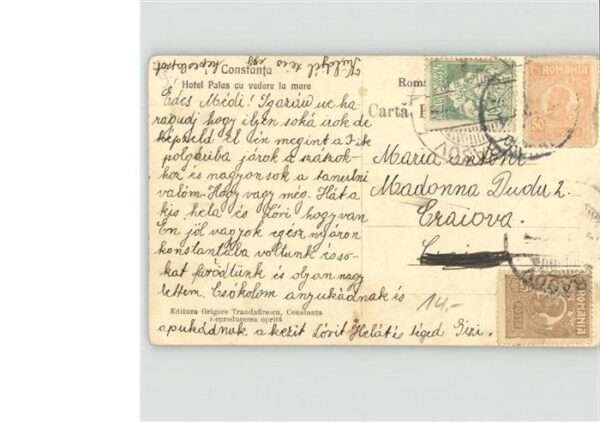 Constanța
Hotel Palas cu vedere la mare
Carta P
Édes Médi! Igazán ne ha-
ragudj hogy ilyen soká írok de
képzeld el én megint a
polgáriba járok
hoz és nagyon sok a tanulni
valóm. Hogy vagy még. Hát a
kis hela és Lóri hogy van
Én jól vagyok egész nyáron
konstantába voltunk és so-
kat fürödtünk és olyan nagy
lettem. Csókolom anyukádnak és
apukádnak a kezit Lórit Helát és téged Gizi.
Editura Grigore Trandafirescu, Constanța
Reproducerea oprită
Maria Antoni
Madonna Dudu 2.
Craiova.
14,-
ROMANIA
50
ROMANIA